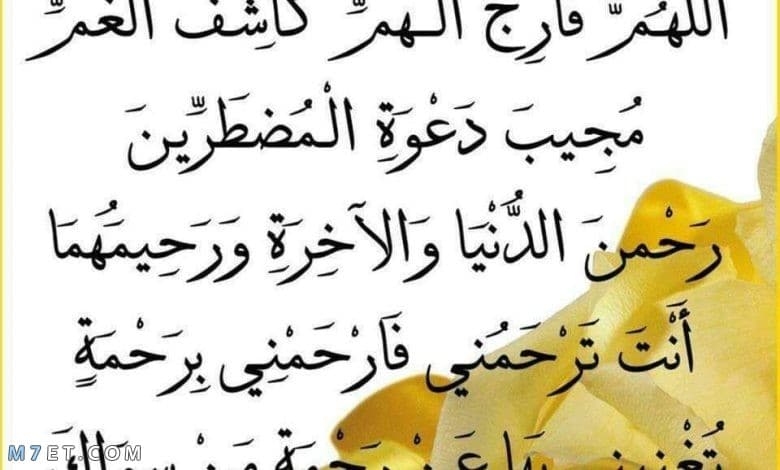 اللَّهُمَّ فَارِجَ الْهَمِّ كَاشِفَ الْغَمِّ
مُجِيبَ دَعْوَةِ الْمُضطَرِّينَ
رَحْمنَ الدُّنْيَا وَالآخِرَةِ وَرَحِيمَهُمَا
أَنْتَ تَرْحَمُنِي فَارْحَمْنِي بِرَحْمَةٍ
تُغْنِينِي بِهَا عَنْ رَحْمَةِ مَنْ سِوَاكَ
M7ET.COM